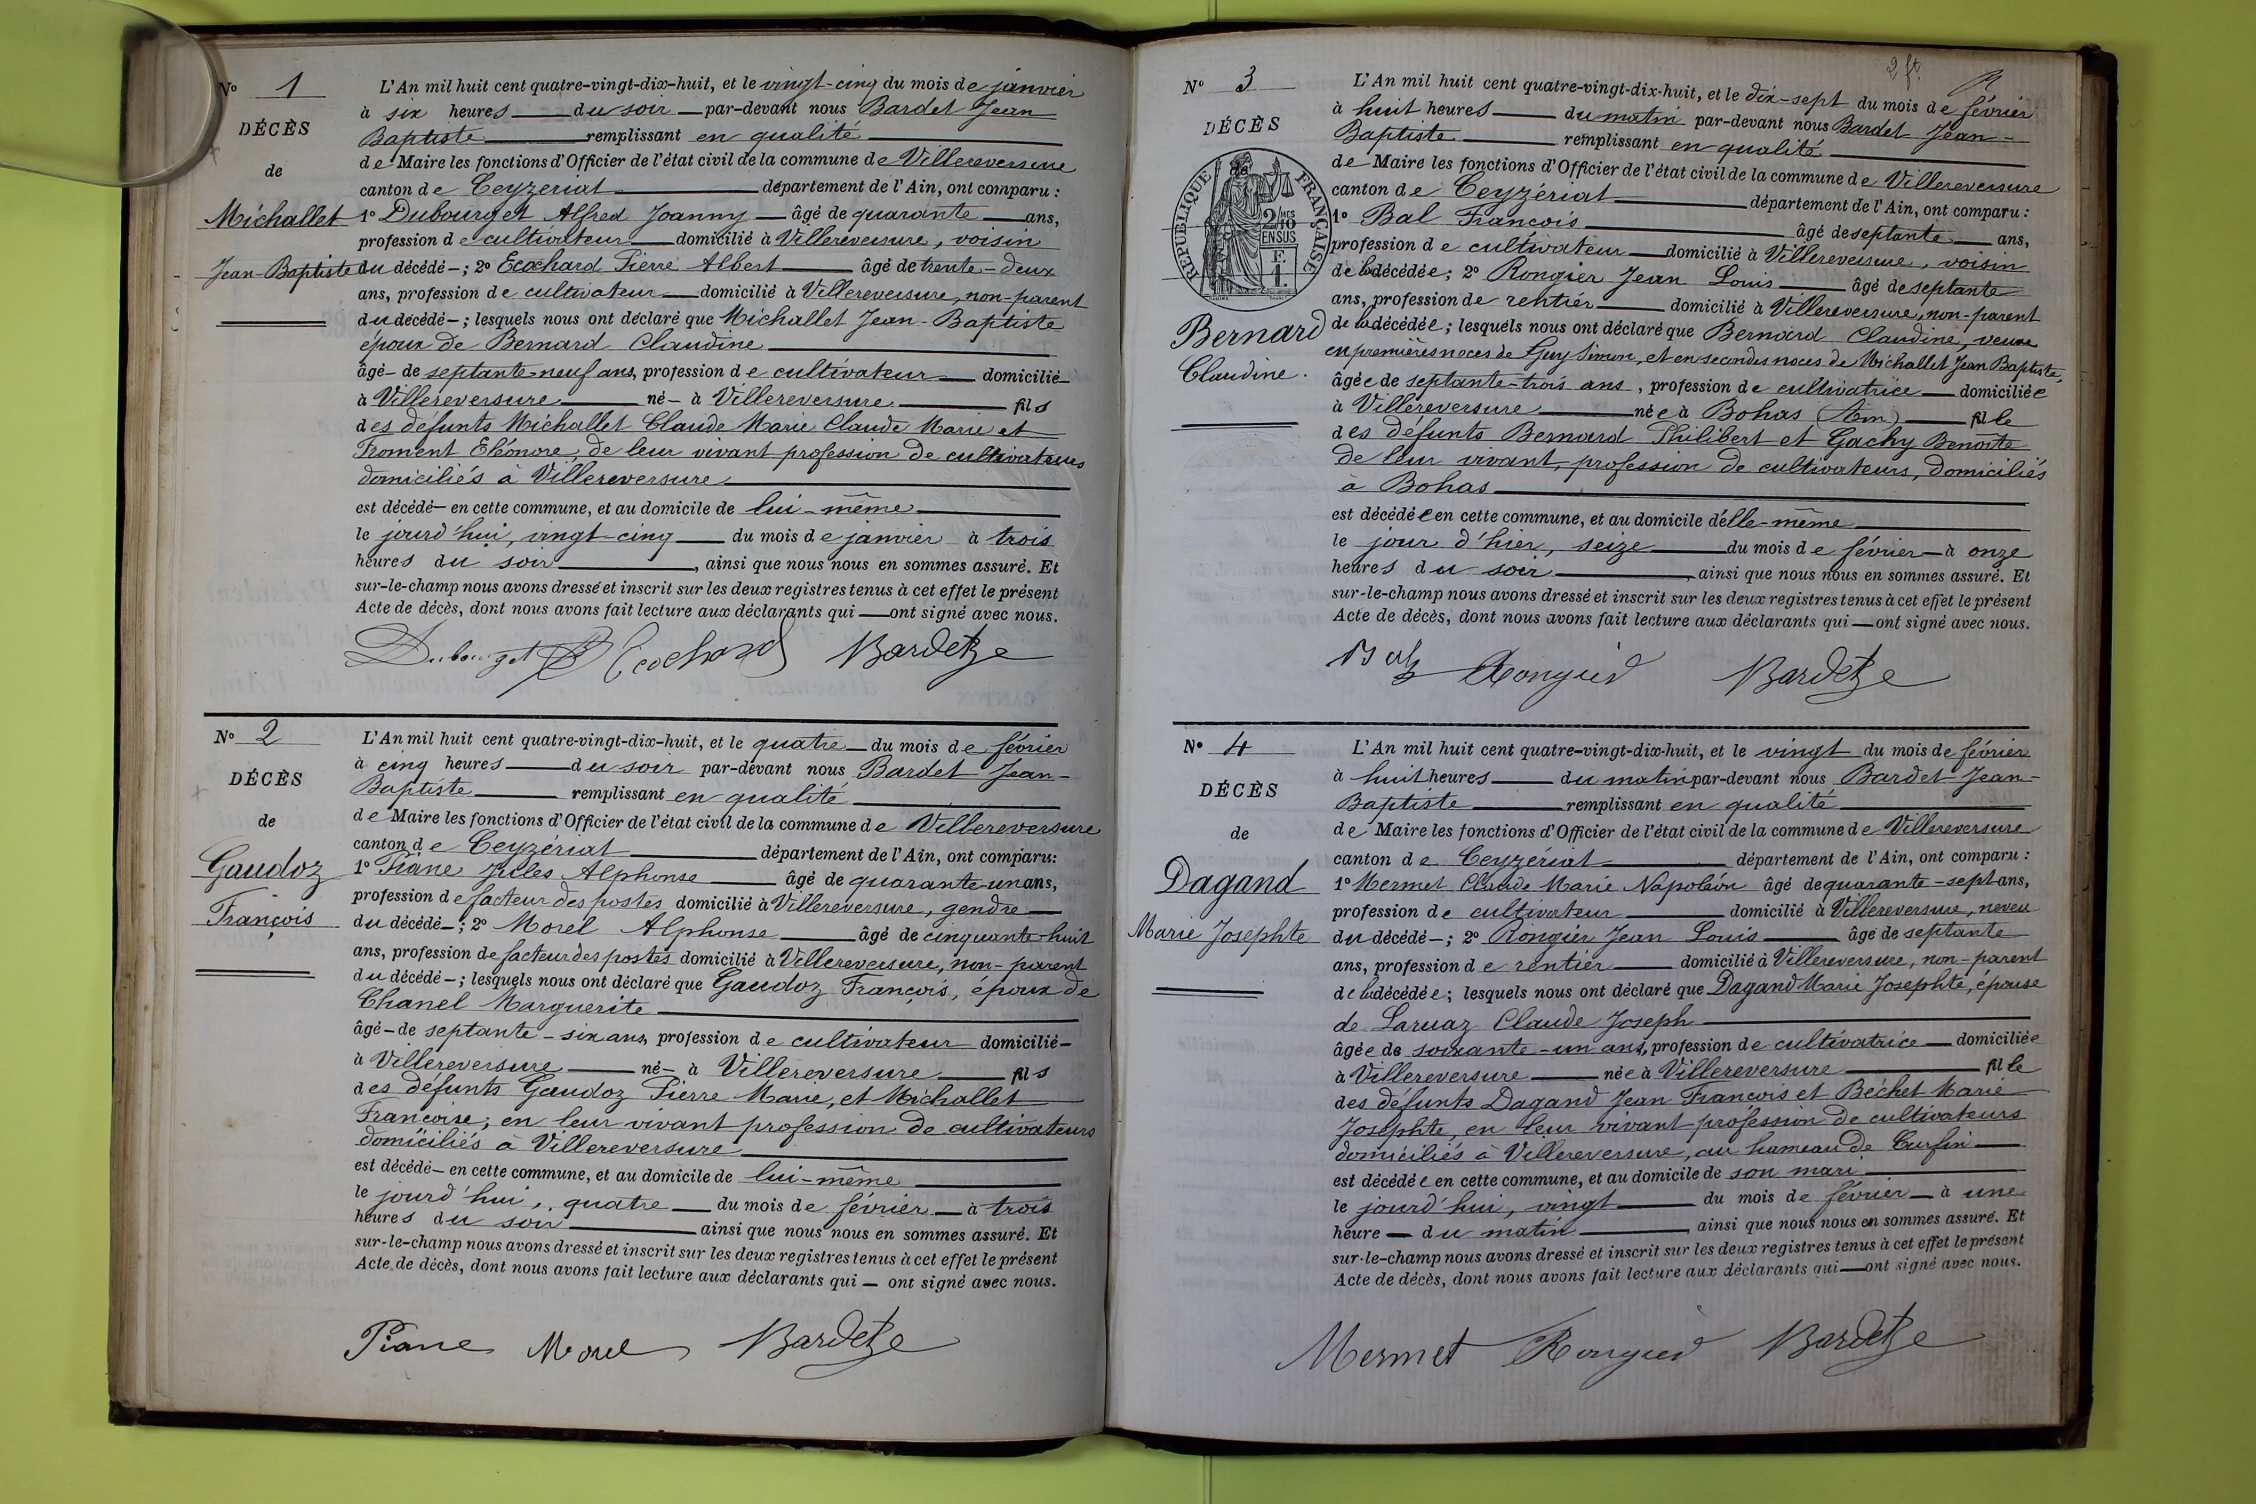 No 1
DÉCÈS
de
Michallet
Jean-Baptiste
L'An mil huit cent quatre-vingt-dix-huit, et le vingt-cinq du mois de janvier
à six heures du soir par-devant nous Bardet Jean
Baptiste remplissant en qualité
de Maire les fonctions d'Officier de l'état civil de la commune de Villereversure
canton de Ceyzériat département de l'Ain, ont comparu :
1o Dubourget Alfred Joanny âgé de quarante ans,
profession de cultivateur domicilié à Villereversure, voisin
du décédé ; 2o Ecochard Pierre Albert âgé de trente-deux
ans, profession de cultivateur domicilié à Villereversure, non-parent
du décédé ; lesquels nous ont déclaré que Michallet Jean-Baptiste
époux de Bernard Claudine
âgé de septante-neuf ans, profession de cultivateur domicilié
à Villereversure né à Villereversure fils
des défunts Michallet Claude Marie Claude Marie et
Froment Eléonore, de leur vivant profession de cultivateurs
domiciliés à Villereversure
est décédé en cette commune, et au domicile de lui-même
le jourd'hui, vingt-cinq du mois de janvier à trois
heures du soir, ainsi que nous nous en sommes assuré. Et
sur-le-champ nous avons dressé et inscrit sur les deux registres tenus à cet effet le présent
Acte de décès, dont nous avons fait lecture aux déclarants qui ont signé avec nous.
Dubourget Ecochard Bardet
No 2
DÉCÈS
de
Gaudoz
François
L'An mil huit cent quatre-vingt-dix-huit, et le quatre du mois de février
à cinq heures du soir par-devant nous Bardet Jean-
Baptiste remplissant en qualité
de Maire les fonctions d'Officier de l'état civil de la commune de Villereversure
canton de Ceyzériat département de l'Ain, ont comparu:
1o Piane Jules Alphonse âgé de quarante-un ans,
profession de facteur des postes domicilié à Villereversure, gendre
du décédé ; 2o Morel Alphonse âgé de cinquante-huit
ans, profession de facteur des postes domicilié à Villereversure, non-parent
du décédé ; lesquels nous ont déclaré que Gaudoz François, époux de
Chanel Marguerite
âgé de septante-six ans, profession de cultivateur domicilié
à Villereversure né à Villereversure fils
des défunts Gaudoz Pierre Marie, et Michallet
Françoise, en leur vivant profession de cultivateurs
domiciliés à Villereversure
est décédé en cette commune, et au domicile de lui-même
le jourd'hui, quatre du mois de février à trois
heures du soir ainsi que nous nous en sommes assuré. Et
sur-le-champ nous avons dressé et inscrit sur les deux registres tenus à cet effet le présent
Acte de décès, dont nous avons fait lecture aux déclarants qui ont signé avec nous.
Piane Morel Bardet
2 ft
No 3
DÉCÈS
de
RÉPUBLIQUE FRANÇAISE
2/10 MES
EN SUS
F.
1.
Bernard
Claudine.
L'An mil huit cent quatre-vingt-dix-huit, et le dix-sept du mois de février
à huit heures du matin par-devant nous Bardet Jean-
Baptiste remplissant en qualité
de Maire les fonctions d'Officier de l'état civil de la commune de Villereversure
canton de Ceyzériat département de l'Ain, ont comparu :
1o Bal François âgé de septante ans,
profession de cultivateur domicilié à Villereversure, voisin
de la décédée ; 2o Rongier Jean Louis âgé de septante
ans, profession de rentier domicilié à Villereversure, non-parent
de la décédée ; lesquels nous ont déclaré que Bernard Claudine, veuve
en premières noces de Guy Simon, et en secondes noces de Michallet Jean Baptiste,
âgée de septante-trois ans, profession de cultivatrice domiciliée
à Villereversure née à Bohas (Ain) fille
des défunts Bernard Philibert et Gachy Benoîte
de leur vivant, profession de cultivateurs, domiciliés
à Bohas
est décédée en cette commune, et au domicile d'elle-même
le jour d'hier, seize du mois de février à onze
heures du soir, ainsi que nous nous en sommes assuré. Et
sur-le-champ nous avons dressé et inscrit sur les deux registres tenus à cet effet le présent
Acte de décès, dont nous avons fait lecture aux déclarants qui ont signé avec nous.
Bal Rongier Bardet
No 4
DÉCÈS
de
Dagand
Marie Josephte
L'An mil huit cent quatre-vingt-dix-huit, et le vingt du mois de février
à huit heures du matin par-devant nous Bardet Jean-
Baptiste remplissant en qualité
de Maire les fonctions d'Officier de l'état civil de la commune de Villereversure
canton de Ceyzériat département de l'Ain, ont comparu :
1o Mermet Claude Marie Napoléon âgé de quarante-sept ans,
profession de cultivateur domicilié à Villereversure, neveu
du décédé ; 2o Rongier Jean Louis âgé de septante
ans, profession de rentier domicilié à Villereversure, non-parent
de la décédée ; lesquels nous ont déclaré que Dagand Marie Josephte, épouse
de Laruaz Claude Joseph
âgée de soixante-un ans, profession de cultivatrice domiciliée
à Villereversure née à Villereversure fille
des défunts Dagand Jean François et Béchet Marie
Josephte, en leur vivant profession de cultivateurs
domiciliés à Villereversure, au hameau de Curfin
est décédée en cette commune, et au domicile de son mari
le jourd'hui, vingt du mois de février à une
heure du matin, ainsi que nous nous en sommes assuré. Et
sur-le-champ nous avons dressé et inscrit sur les deux registres tenus à cet effet le présent
Acte de décès, dont nous avons fait lecture aux déclarants qui ont signé avec nous.
Mermet Rongier Bardet